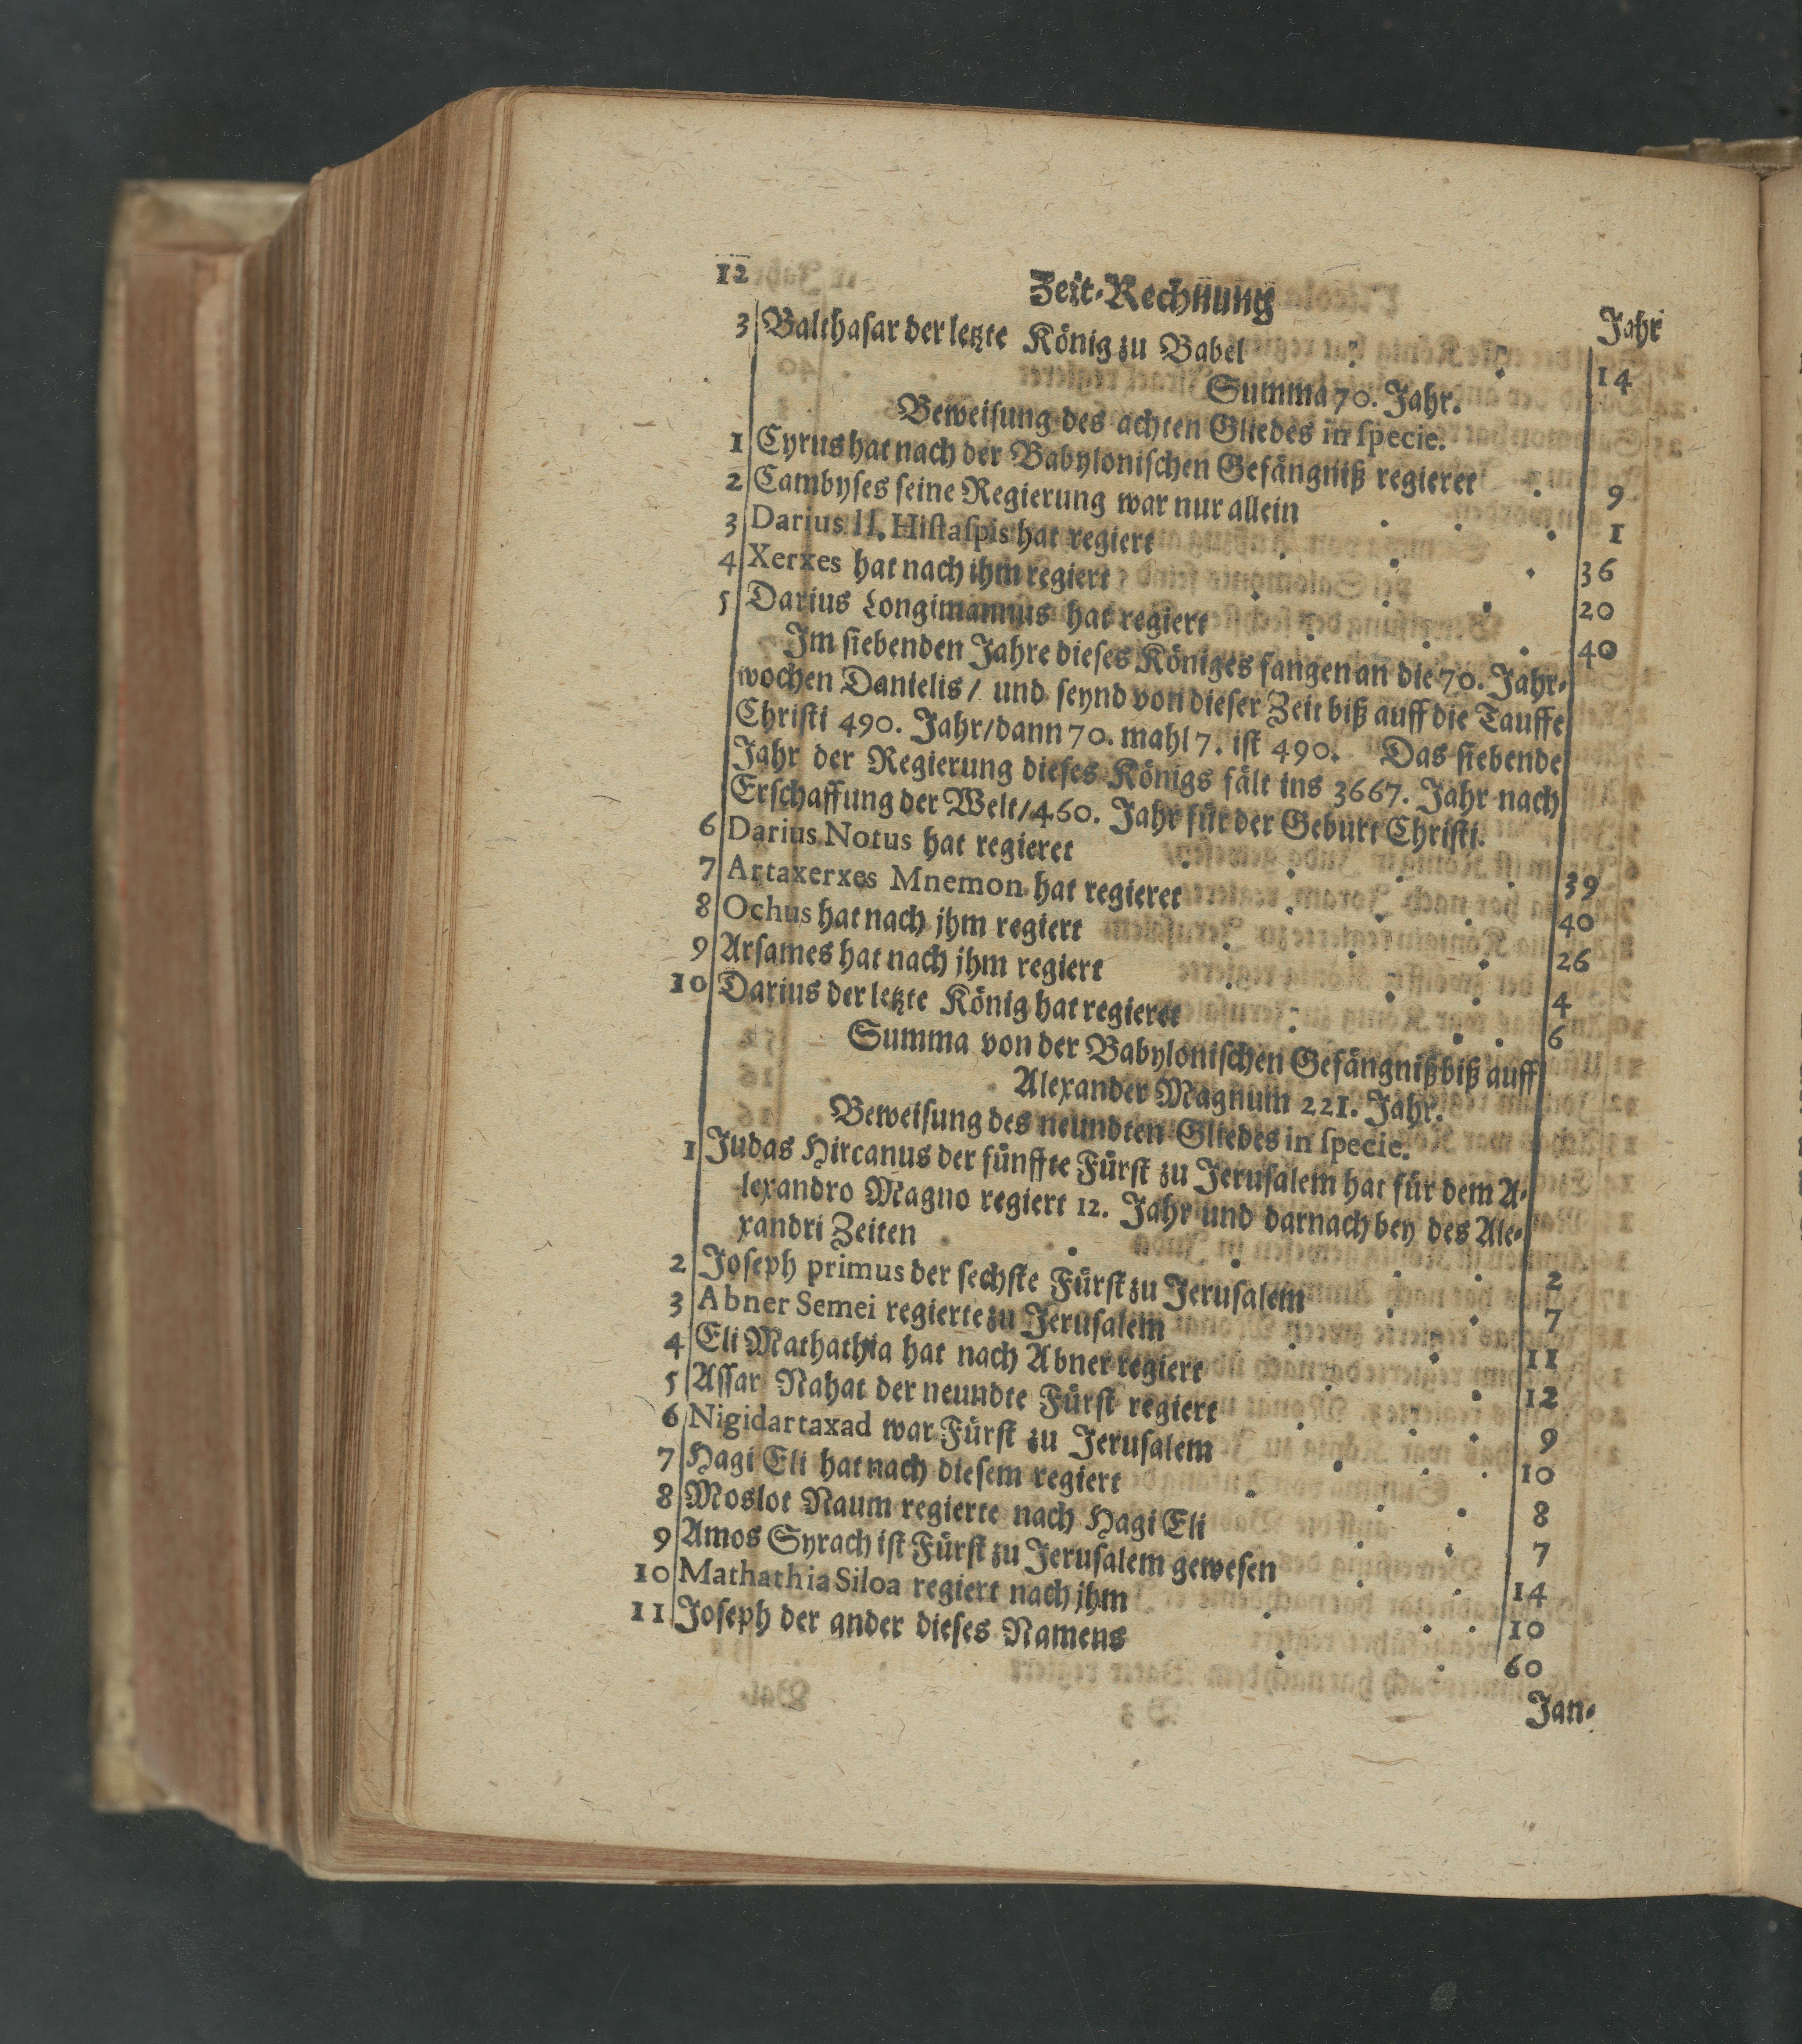 12 Zeit-Rechnung
Jahr
3 Balthasar der letzte König zu Babel . . 14
Summa 70. Jahr.
Beweisung des achten Gliedes in specie.
1 Cyrus hat nach der Babylonischen Gefängniß regieret . 9
2 Cambyses seine Regierung war nur allein . . . 1
3 Darius II. Histaspis hat regiert . . . 36
4 Xerxes hat nach ihm regiert . . . 20
5 Darius Longimannus hat regiert . . . 40
Im siebenden Jahre dieses Königes fangen an die 70. Jahr-
wochen Danielis / und seynd von dieser Zeit biß auff die Tauffe
Christi 490. Jahr / dann 70. mahl 7. ist 490. Das siebende
Jahr der Regierung dieses Königs fält ins 3667. Jahr nach
Erschaffung der Welt / 460. Jahr für der Geburt Christi.
6 Darius Notus hat regieret . . . . 39
7 Artaxerxes Mnemon hat regieret . . . 40
8 Ochus hat nach jhm regiert . . . 26
9 Arsames hat nach jhm regiert . . . 4
10 Darius der letzte König hat regieret . . . 6
Summa von der Babylonischen Gefängniß biß auff
Alexander Magnum 221. Jahr.
Beweisung des neundten Gliedes in specie.
1 Judas Hircanus der fünffte Fürst zu Jerusalem hat für dem A-
lexandro Magno regiert 12. Jahr und darnach bey des Ale-
xandri Zeiten . . . . 2
2 Joseph primus der sechste Fürst zu Jerusalem . . 7
3 Abner Semei regierte zu Jerusalem . . . 11
4 Eli Mathathia hat nach Abner regiert . . 12
5 Assar Nahat der neundte Fürst regiert . . . 9
6 Nigidartaxad war Fürst zu Jerusalem . . . 10
7 Hagi Eli hat nach diesem regiert . . . 8
8 Moslot Naum regierte nach Hagi Eli . . 7
9 Amos Syrach ist Fürst zu Jerusalem gewesen . . 14
10 Mathathia Siloa regiert nach jhm . . . 10
11 Joseph der ander dieses Namens . . 60
Jan-